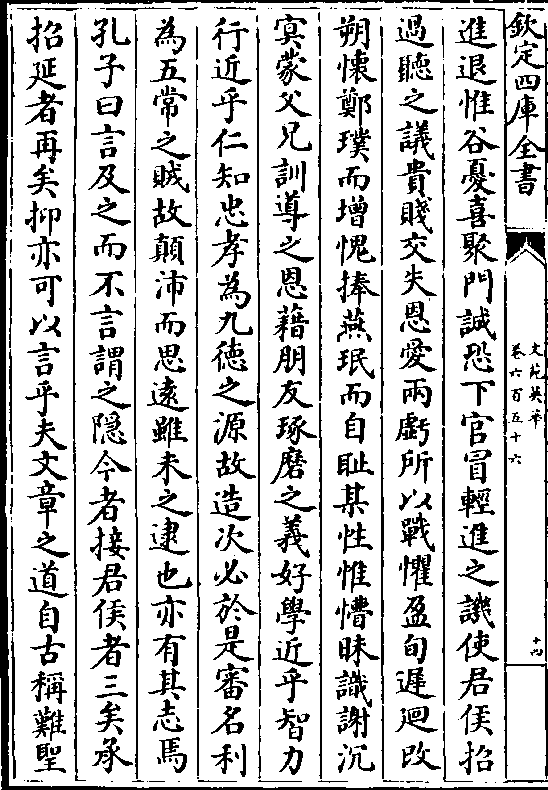 欽定四庫全書
文苑英華
卷六百五十六
十四
進退惟谷憂喜聚門誠恐下官冒輕進之譏使君侯招
過聽之議貴賤交失恩愛兩虧所以戰懼盈旬遲迴改
朔懷鄭璞而増愧捧燕珉而自耻某性惟懵昧識謝沉
㝠蒙父兄訓導之恩藉朋友琢磨之義好學近乎智力
行近乎仁知忠孝為九徳之源故造次必於是審名利
為五常之賊故顛沛而思逺雖未之逮也亦有其志焉
孔子曰言及之而不言謂之隐今者接君侯者三矣承
招延者再矣抑亦可以言乎夫文章之道自古稱難聖